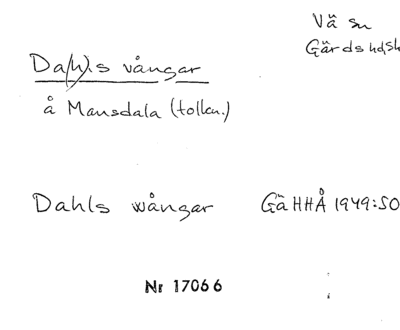 Vä sn
Gärds hd, Sk
Da(h)ls vångar
å Mansdala (tolkn.)
Dahls wångar GäHHÅ 1949:50
Nr 17066